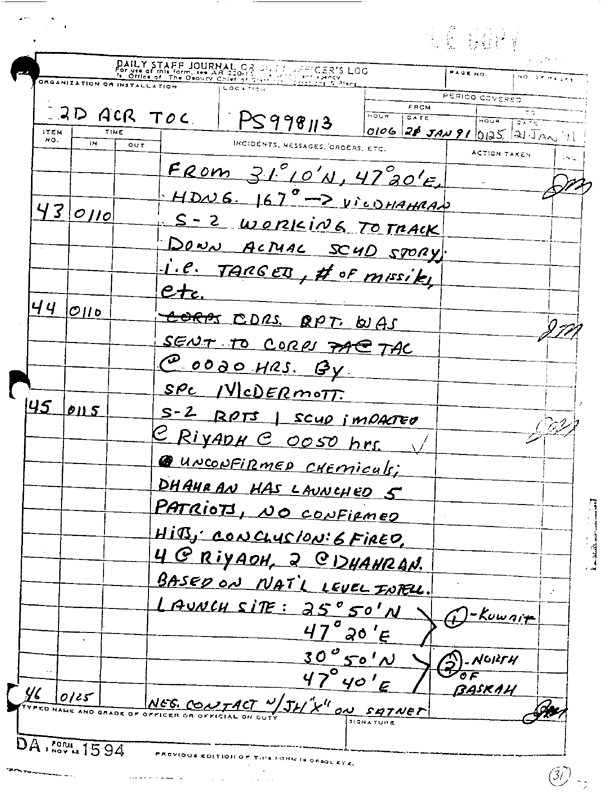 LE COPY
DAILY STAFF JOURNAL OR DUTY OFFICER'S LOG
For use of this form, see AR 220-15
's Office of The Deputy Chief of
PAGE NO.
ORGANIZATION OR INSTALLATION
LOCATION
PERIOD COVERED
2D ACR TOC
PS998113
FROM
TO
HOUR DATE HOUR DATE
0106 21 JAN 91 0125 21 JAN 91
ITEM NO.
TIME
IN OUT
INCIDENTS, MESSAGES, ORDERS, ETC.
ACTION TAKEN
INL
FROM 31°10'N, 47°20'E,
HDNG. 167° → VIC DHAHRAN
JM
43 0110 S-2 WORKING TO TRACK
DOWN ACTUAL SCUD STORY;
i.e. TARGETS, # OF missiles,
etc.
44 0110 CORPS CDRS. RPT. WAS
SENT TO CORPS TAC TAC
@ 0020 HRS. By
SPC McDERMOTT.
JM
45 0115 S-2 RPTS 1 SCUD IMPACTED
@ RiYADH @ 0050 hrs. ✓
JM
UNCONFIRMED CHEMICALS;
DHAHRAN HAS LAUNCHED 5
PATRIOTS, NO CONFIRMED
HITS; CONCLUSION: 6 FIRED,
4 @ RiYADH, 2 @ DHAHRAN.
BASED ON NAT'L LEVEL INTELL.
LAUNCH SITE: 25°50'N
47°20'E
① - KUWAIT
30°50'N
47°40'E
② - NORTH
OF
BASRAH
46 0125 NEG. CONTACT W/JH"X" ON SATNET
JM
TYPED NAME AND GRADE OF OFFICER OR OFFICIAL ON DUTY
SIGNATURE
DA FORM 1 NOV 62 1594
PREVIOUS EDITION OF THIS FORM IS OBSOLETE.
31